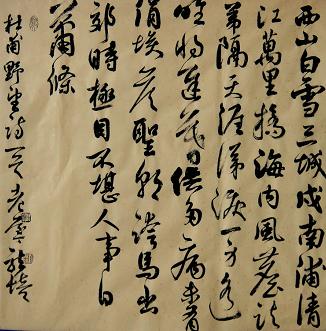 西山白雪三城戍南浦清
江萬里橋海內風塵諸
弟隔天涯涕淚一身遙
唯將遲暮供多病未有
涓埃答聖朝跨馬出
郊時極目不堪人事日
蕭條
杜甫野望詩一首